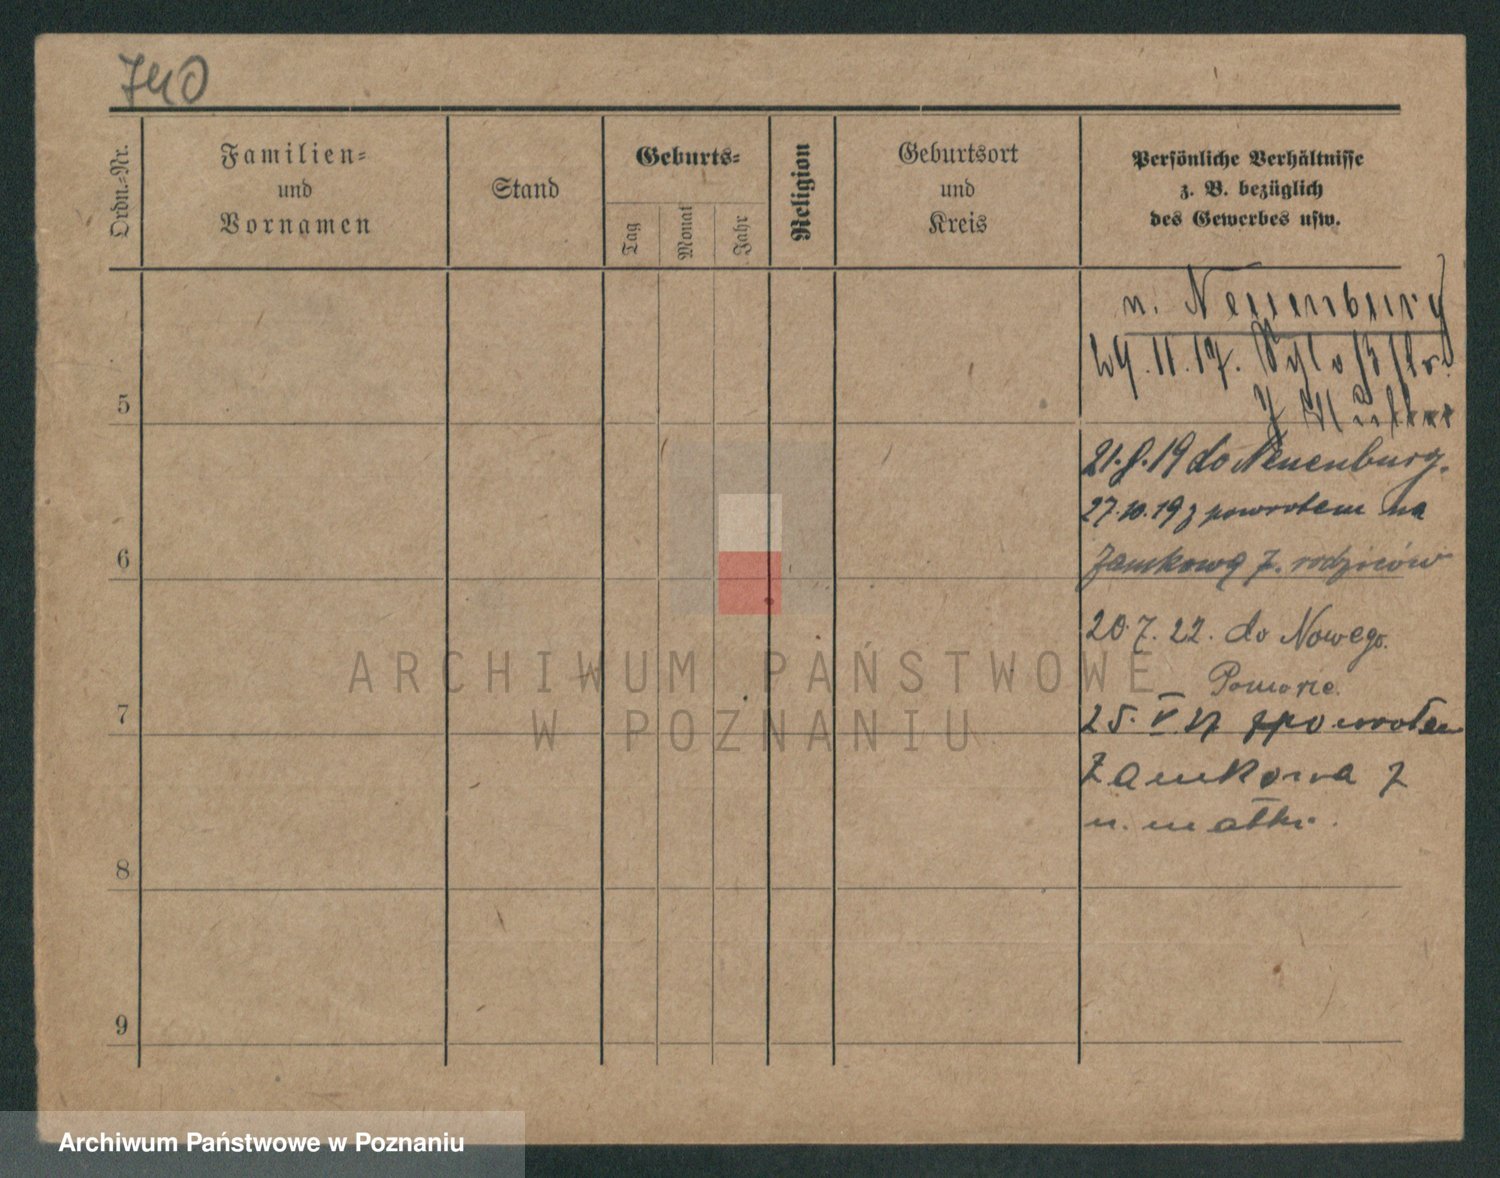 740
Ordn.-Nr.
Familien-
und
Vornamen
Stand
Geburts-
Tag
Monat
Jahr
Religion
Geburtsort
und
Kreis
Persönliche Verhältnisse
z. B. bezüglich
des Gewerbes usw.
n. Neuenburg
11.17. Schloßstr.
5
21.8.19 do Neuenburg.
27.10.19 z powrotem na
6
Zamkową 7. rodziców
20.7.22. do Nowego.
Pomorze.
7
25. V z powrotem
Zamkowa 7
u. matki.
8
9
ARCHIWUM PAŃSTWOWE
W POZNANIU
Archiwum Państwowe w Poznaniu